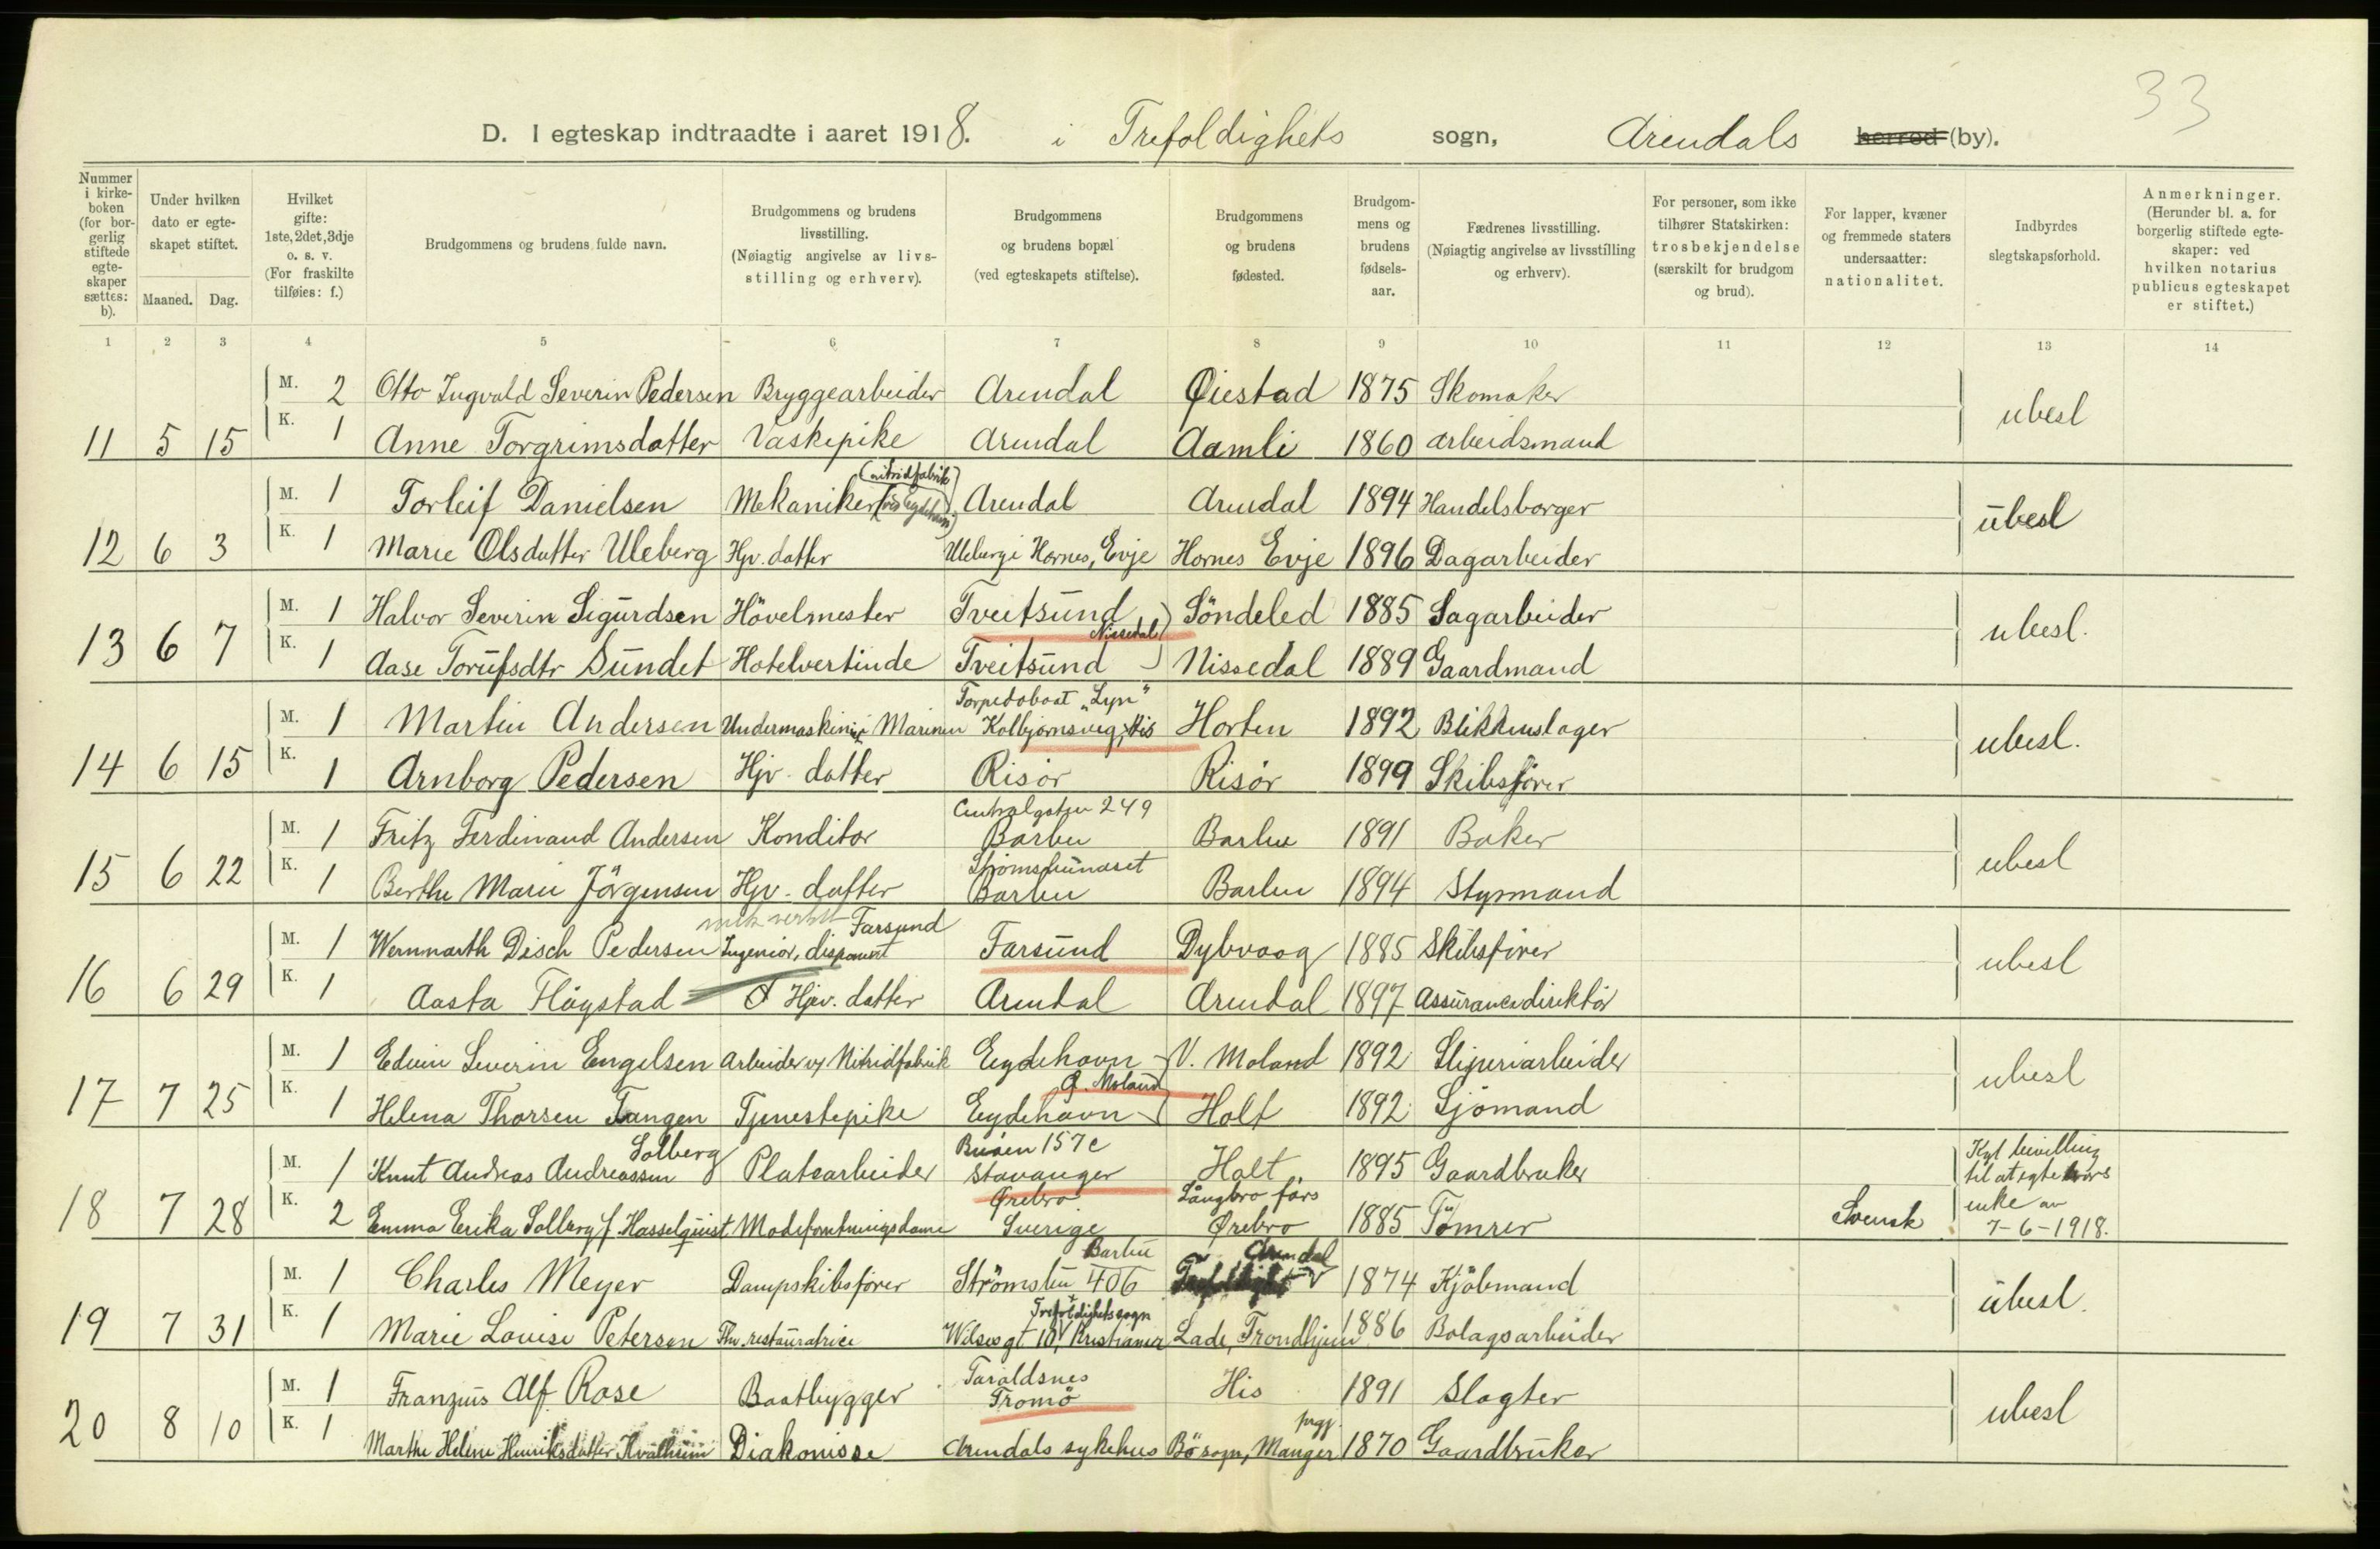 33
D. I egteskap indtraadte i aaret 1918. i Trefoldighets sogn, Arendals herred (by).
Nummer i kirkeboken (for borgerlig stiftede egteskaper sættes: b).
Under hvilken dato er egteskapet stiftet.
Maaned. Dag.
Hvilket gifte: 1ste, 2det, 3dje o. s. v. (For fraskilte tilføies: f.)
Brudgommens og brudens fulde navn.
Brudgommens og brudens livsstilling. (Nøiagtig angivelse av livsstilling og erhverv).
Brudgommens og brudens bopæl (ved egteskapets stiftelse).
Brudgommens og brudens fødested.
Brudgommens og brudens fødselsaar.
Fædrenes livsstilling. (Nøiagtig angivelse av livsstilling og erhverv).
For personer, som ikke tilhører Statskirken: trosbekjendelse (særskilt for brudgom og brud).
For lapper, kvæner og fremmede staters undersaatter: nationalitet.
Indbyrdes slegtskapsforhold.
Anmerkninger. (Herunder bl. a. for borgerlig stiftede egteskaper: ved hvilken notarius publicus egteskapet er stiftet.)
1 2 3 4 5 6 7 8 9 10 11 12 13 14
M. 2 Otto Ingvald Severin Pedersen Bryggearbeider Arendal Øiestad 1875 Skomaker ubesl
11 5 15 K. 1 Anne Torgrimsdatter Vaskepike Arendal Aamli 1860 arbeidsmand
(nitridfabrik
M. 1 Torleif Danielsen Mekaniker Eydehavn) Arendal Arendal 1894 Handelsborger ubesl
12 6 3 K. 1 Marie Olsdatter Uleberg Hjv. datter Uleberg i Hornes, Evje Hornes Evje 1896 Dagarbeider
M. 1 Halvor Severin Sigurdsen Hövelmester Tveitsund Söndeled 1885 Sagarbeider ubesl.
Nissedal
13 6 7 K. 1 Aase Torufsdtr Sundet Hotelvertinde Tveitsund Nissedal 1889 Gaardmand
Torpedobaat "Lyn"
M. 1 Martin Andersen Undermaskinist Marinen Kolbjörnsvig, His Horten 1892 Blikkenslager ubesl.
14 6 15 K. 1 Arnborg Pedersen Hjv. datter Risör Risör 1899 Skibsförer
Centralgaten 249
M. 1 Fritz Ferdinand Andersen Konditor Barbu Barbu 1891 Baker ubesl
Strömsbunaset
15 6 22 K. 1 Berthe Marie Jörgensen Hjv. datter Barbu Barbu 1894 Styrmand
mek verkst Farsund
M. 1 Wernmarth Disch Pedersen Ingeniör, disponent Farsund Dybvaag 1885 Skibsförer ubesl
16 6 29 K. 1 Aasta Flögstad Hjv. datter Arendal Arendal 1897 Assurancedirektör
M. 1 Edvin Severin Engelsen Arbeider v/ Nitridfabrik Eydehavn V. Moland 1892 Sliperiarbeider ubesl
Ø. Moland
17 7 25 K. 1 Helena Thorsen Tangen Tjenestepike Eydehavn Holt 1892 Sjömand
Solberg Buöen 157c
M. 1 Knut Andreas Andreassen Platearbeider Stavanger Holt 1895 Gaardbruker Kgl bevilling til at egte brors enke av 7-6-1918.
Ørebro Långbro förs
18 7 28 K. 2 Emma Erika Solberg f. Hasselquist Modeforretningsdame Sverige Ørebro 1885 Tömrer Svensk
Barbu Arendal
M. 1 Charles Meyer Dampskibsförer Strömsbu 406 1874 Kjöbmand ubesl.
Trefoldighetssogn
19 7 31 K. 1 Marie Louise Petersen Fhv. restauratrice Wilsesgt. 10, Kristiania Lade, Trondhjem 1886 Bolagsarbeider
Taraldsnes
M. 1 Franzius Alf. Rose Baatbygger Tromö His 1891 Slagter ubesl
prgj.
20 8 10 K. 1 Marthe Helene Henriksdatter Kvalheim Diakonisse Arendals sykehus Bö sogn, Manger 1870 Gaardbruker